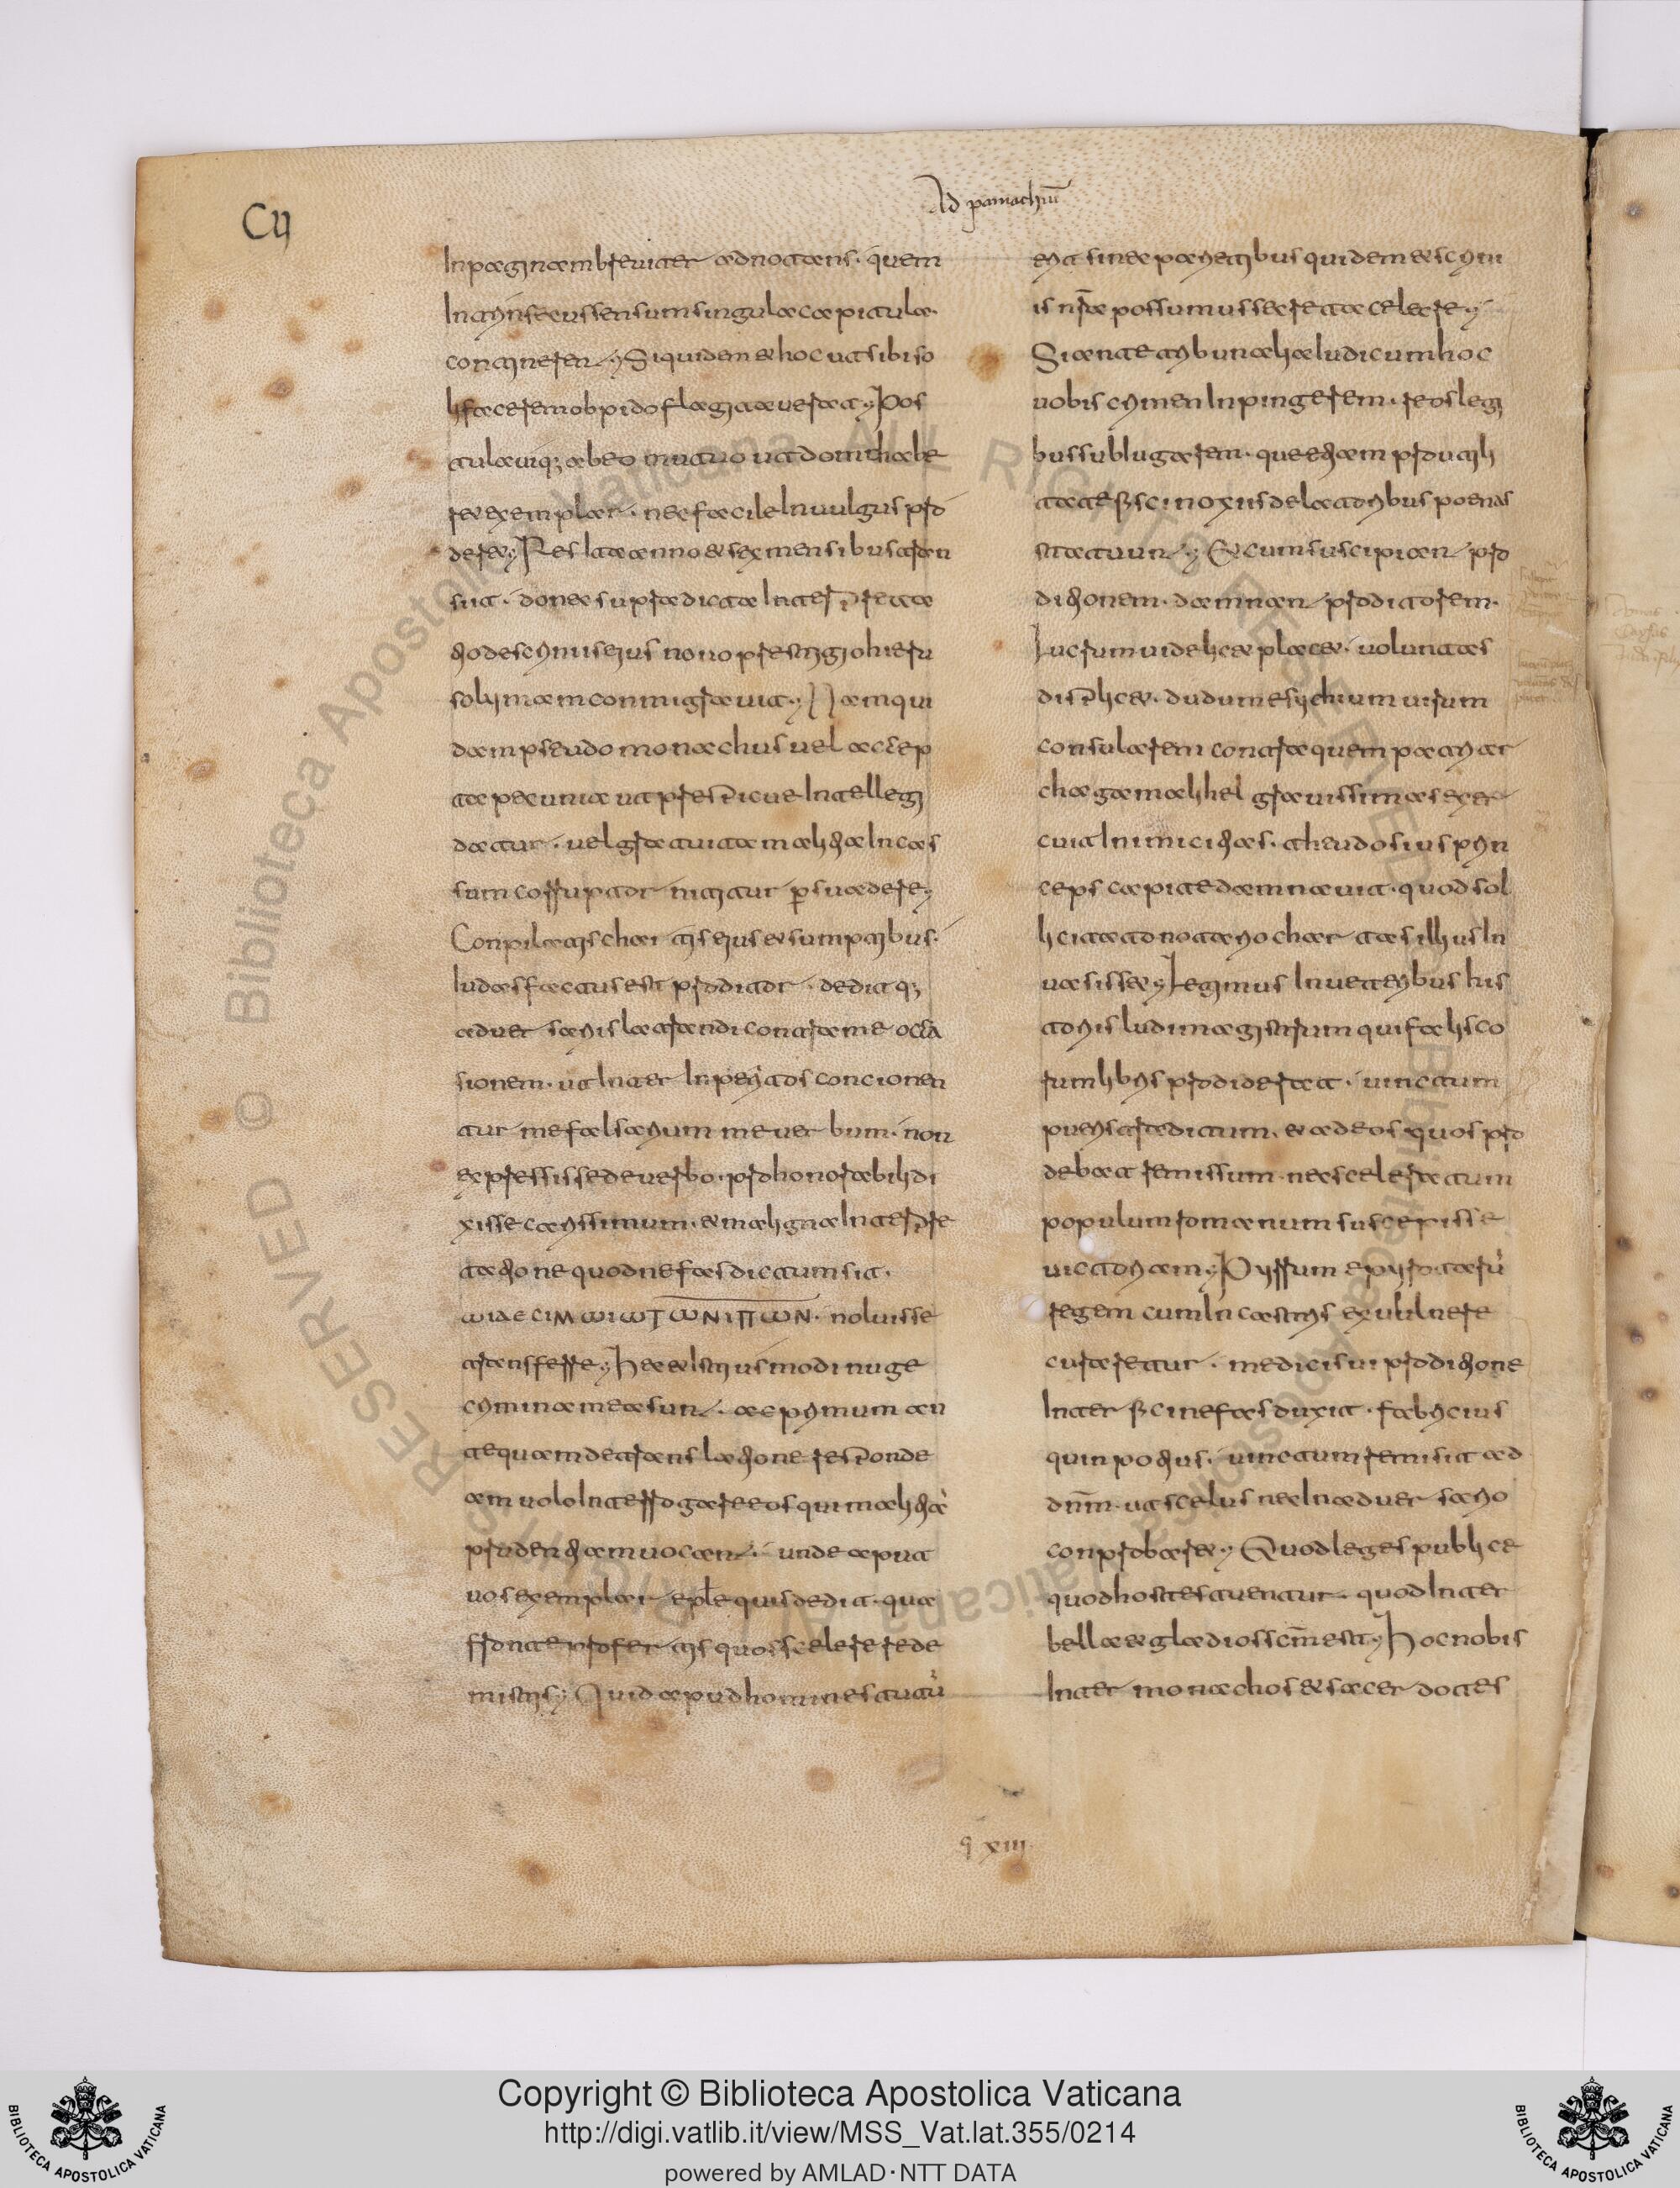 Cij
Ad pamachiū
In paginam breviter adnotans. quem
Intrinsecus sensum singula capitula.
continerent. Siquidem et hoc ut sibi so
li facerem obpido flagitaverat. Pos
tulavique ab eo mutuo ut domi habe
ret exemplar. nec facile In vulgus pro
deret. Res Ita anno et sex mensibus tran
siit. donec supradicta Interpreta
tio de scriniis eius novo prestigio hieru
solymam commigravit. Nam qui
dam pseudomonachus vel accep
ta pecunia ut perspicue Intellegi
datur. vel gratuita malitia Incas
sum corruptor nititur persuadere.
Conpilatis chartis eius et sumptibus.
Iudas factus est proditor. deditque
adversariis latrandi contra me occa
sionem. ut Inter Inperitos concionen
tur me falsarium me verbum. non
expressisse de verbo. pro honorabili di
xisse carissimum. et maligna Interpre
tatione quod nefas dictum sit.
ωιδεcιмωιωτωNιπωN. noluisse
transferre. Hec et Istiusmodi nuge
crimina mea sunt. ac primum an
tequam de translatione responde
am volo Interrogare eos qui malitiā
prudentiam vocant. unde aput
vos exemplar eple quis dedit. qua
fronte profertis quos scelere rede
mistis. Quid apud homines tutū
erit si nec parietibus quidem et scrini
is nr̄a possumus secreta celare.
Si ante tribunalia Iudicum hoc
vobis crimen Inpingerem. reos legi
bus subIugarem. que etiam pro utili
tate fisci noxiis delatoribus poenas
statuunt. Et cum suscipiant pro
ditionem. damnant proditorem.
Lucrum videlicet placet. voluntas
displicet. dudum esychium virum
consularem contra quem patriar
cha gamalihel gravissimas exer
cuit Inimicitias. theudosius prin
ceps capite damnavit. quod sol
licitato notario chartas illius In
vasisset. Legimus In veteribus his
toriis ludi magistrum qui falisco
rum liberos prodiderat. vinctum
pueris traditum. et ad eos quos pro
debat remissum. nec sceleratum
populum romanum suscepisse
victoriam. Pyrrum epyrotarū
regem cum In castris ex vulnere
curaretur. medici sui proditione
Inter fici nefas duxit. fabricius
quin potius. vinctum remisit ad
dnm̄. ut scelus nec In adversario
conprobaret. Quod leges publice
quod hostes tuentur. quod Inter
bella et gladios scm̄ est. Hoc nobis
Inter monachos et sacerdotes
q xiii
Copyright © Biblioteca Apostolica Vaticana
http://digi.vatlib.it/view/MSS_Vat.lat.355/0214
powered by AMLAD·NTT DATA
BIBLIOTECA APOSTOLICA VATICANA
BIBLIOTECA APOSTOLICA VATICANA